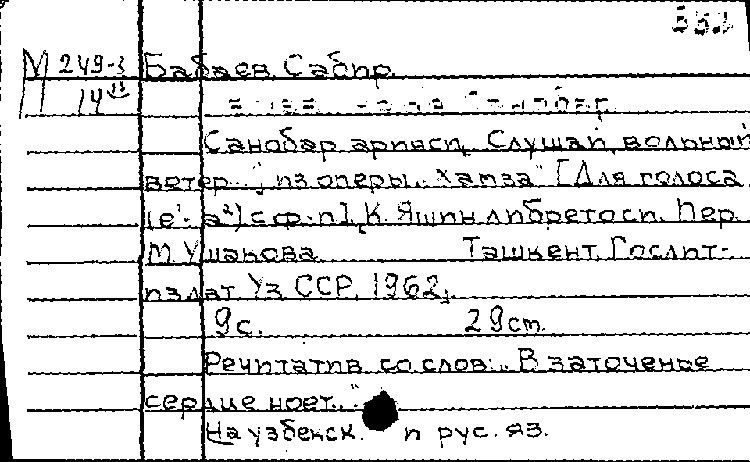 М 249-3 Бабаев, Сабир.
14
Санобар арияси. Слушай, вольный
ветер..., из оперы „Хамза" [Для голоса
(e¹-a²) с ф-п]. К. Яшин либреттоси. Пер.
М. Ушакова Ташкент, Гослит-
издат Уз ССР, 1962,
9 с. 29 cm.
Речитатив со слов: „В заточенье
сердце ноет..."
На узбекск. и рус. яз.